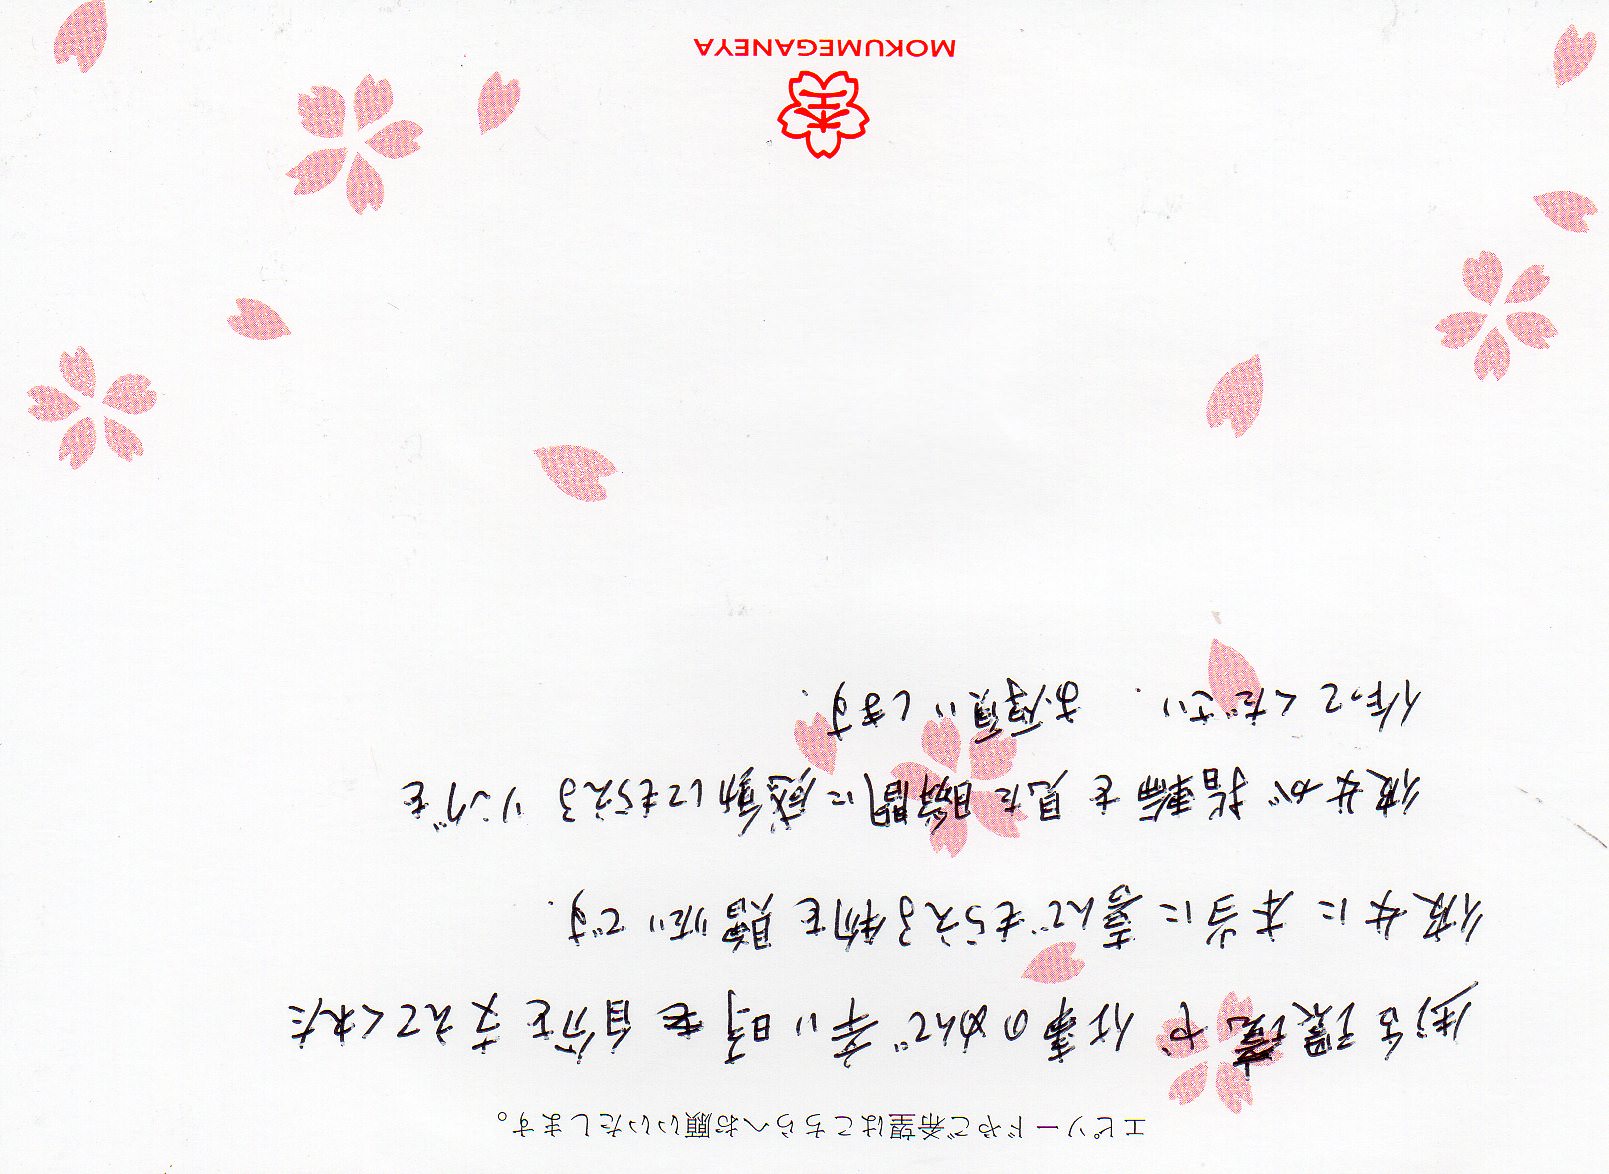 エピソードやご希望はこちらへお願いいたします。
生活環境や 仕事のめんで 辛い時も 自分を 支えてくれた
彼女に本当に喜んでもらえる物を贈りたいです.
彼女が指輪を見た瞬間に感動してもらえるリングを
作ってください. お願いします.
杢
MOKUMEGANEYA